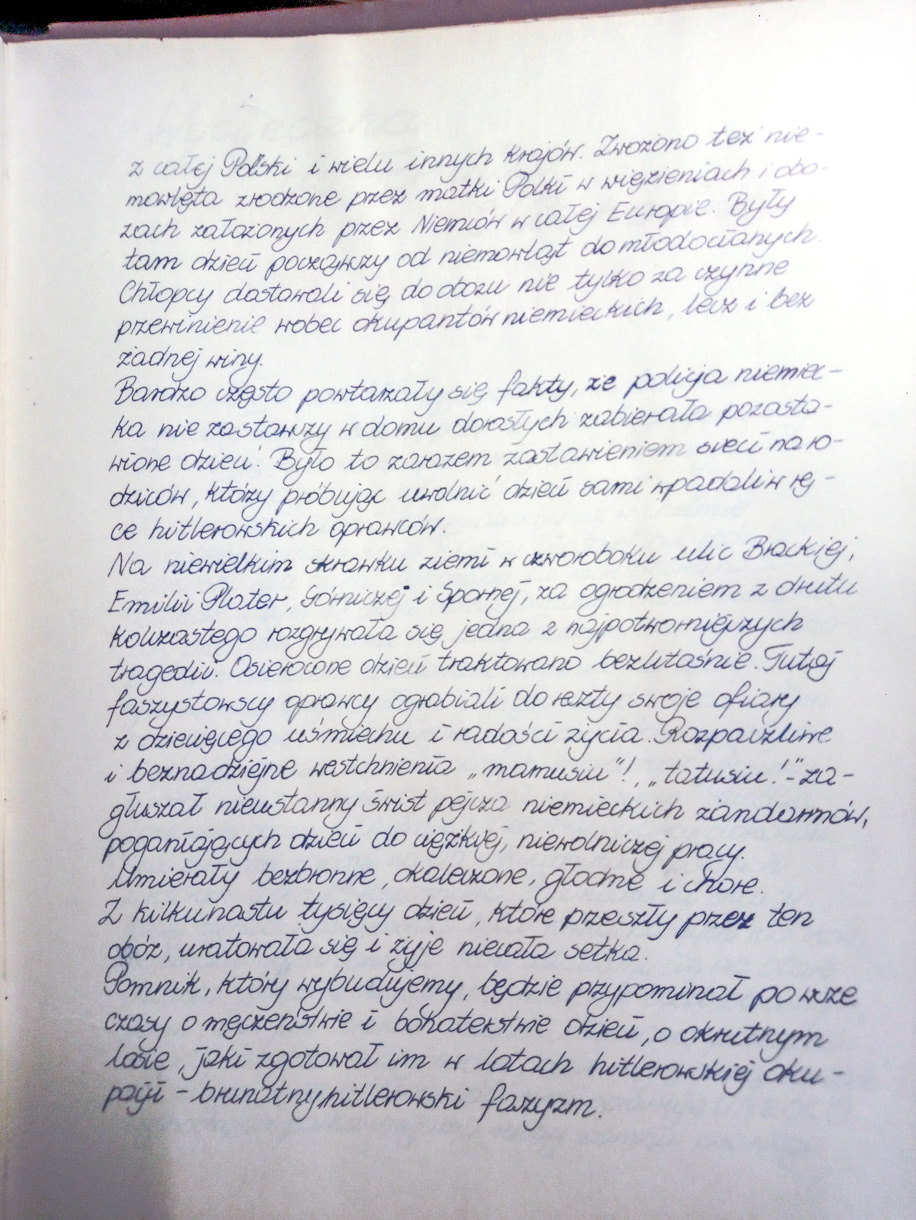 z całej Polski i wielu innych krajów. Zwożono też nie-
mowlęta zrodzone przez matki Polki w więzieniach i obo-
zach założonych przez Niemców w całej Europie. Były
tam dzieci począwszy od niemowląt do młodocianych.
Chłopcy dostawali się do obozu nie tylko za czynne
przewinienie wobec okupantów niemieckich, lecz i bez
żadnej winy.
Bardzo często powtarzały się fakty, że policja niemiec-
ka nie zastawszy w domu dorosłych zabierała pozosta-
wione dzieci. Było to zarazem zastawieniem sieci na ro-
dziców, którzy próbując uwolnić dzieci sami wpadali w rę-
ce hitlerowskich oprawców.
Na niewielkim skrawku ziemi w czworoboku ulic Brackiej,
Emilii Plater, Górniczej i Spornej, za ogrodzeniem z drutu
kolczastego rozgrywała się jedna z najpotworniejszych
tragedii. Osierocone dzieci traktowano bezlitośnie. Tutaj
faszystowscy oprawcy ograbiali do reszty swoje ofiary
z dziecięcego uśmiechu i radości życia. Rozpaczliwe
i beznadziejne westchnienia „mamusiu"!, „tatusiu!" - za-
głuszał nieustanny świst pejcza niemieckich żandarmów,
poganiających dzieci do ciężkiej, niewolniczej pracy.
Umierały bezbronne, okaleczone, głodne i chore.
Z kilkunastu tysięcy dzieci, które przeszły przez ten
obóz, uratowała się i żyje niecała setka.
Pomnik, który wybudujemy, będzie przypominał po wsze
czasy o męczeństwie i bohaterstwie dzieci, o okrutnym
losie, jaki zgotował im w latach hitlerowskiej oku-
pacji - brunatny hitlerowski faszyzm.